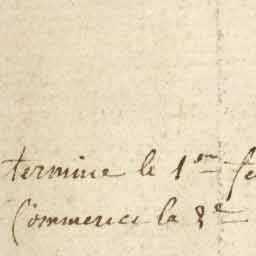 termine le 1er fe
Commence la 2e